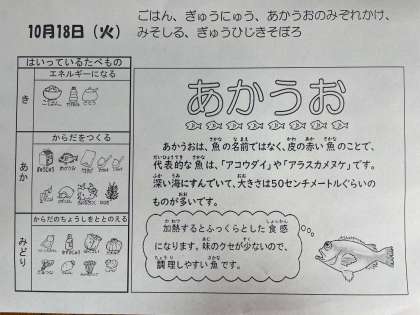 10月18日（火）
ごはん、ぎゅうにゅう、あかうおのみぞれかけ、
みそしる、ぎゅうひじきそぼろ
はいっているたべもの
エネルギーになる
き
からだをつくる
あか
からだのちょうしをととのえる
みどり
あかうお
あかうおは、魚の名前ではなく、皮の赤い魚のことで、
代表的な魚は、「アコウダイ」や「アラスカメヌケ」です。
深い海にすんでいて、大きさは50センチメートルぐらいの
ものが多いです。
加熱するとふっくらとした食感
になります。味のクセが少ないので、
調理しやすい魚です。